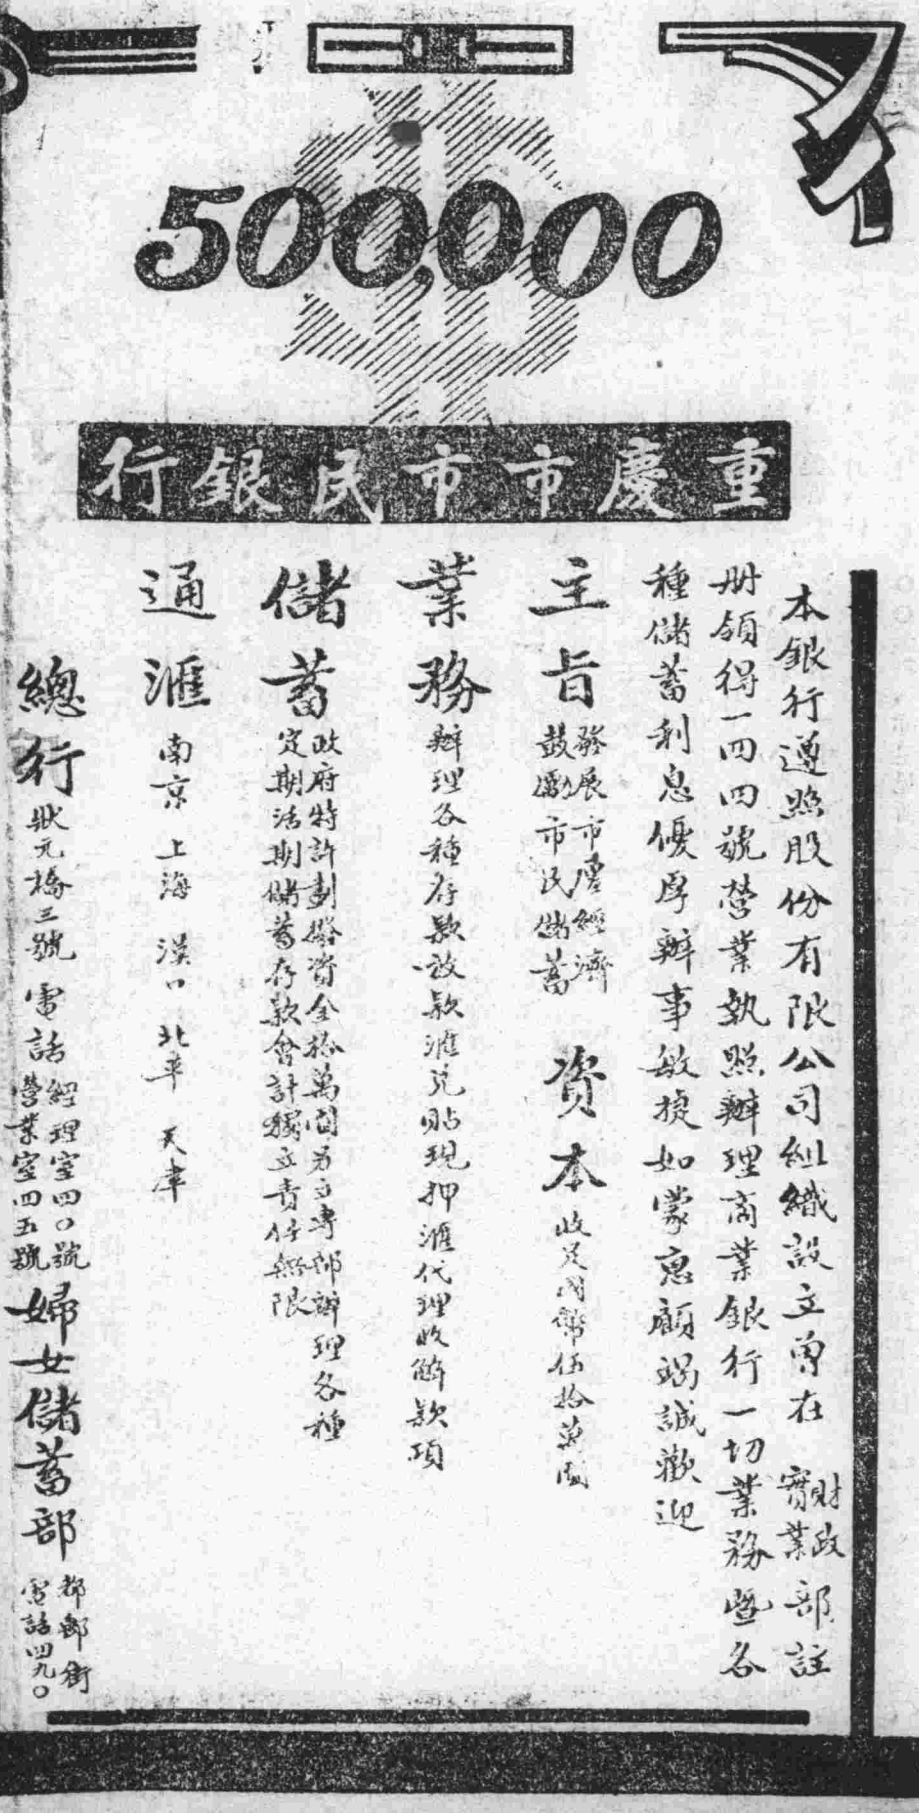 500,000
重慶市市民銀行
本銀行遵照股份有限公司組織設立曾在財政實業部註
册領得一四四號營業執照辦理商業銀行一切業務暨各
種儲蓄利息優厚辦事敏捷如蒙惠顧竭誠歡迎
主旨
發展市廛經濟
鼓勵市民儲蓄
資本
收足國幣伍拾萬圓
業務
辦理各種存款放款滙兑貼現押滙代理收解款項
儲蓄
政府特許劃撥資金拾萬圓另立專部辦理各種
定期活期儲蓄存款會計獨立責任無限
通滙
南京 上海 漢口 北平 天津
總行
狀元橋三號
電話
經理室四〇號
營業室四五號
婦女儲蓄部
都郵街
電話四九〇